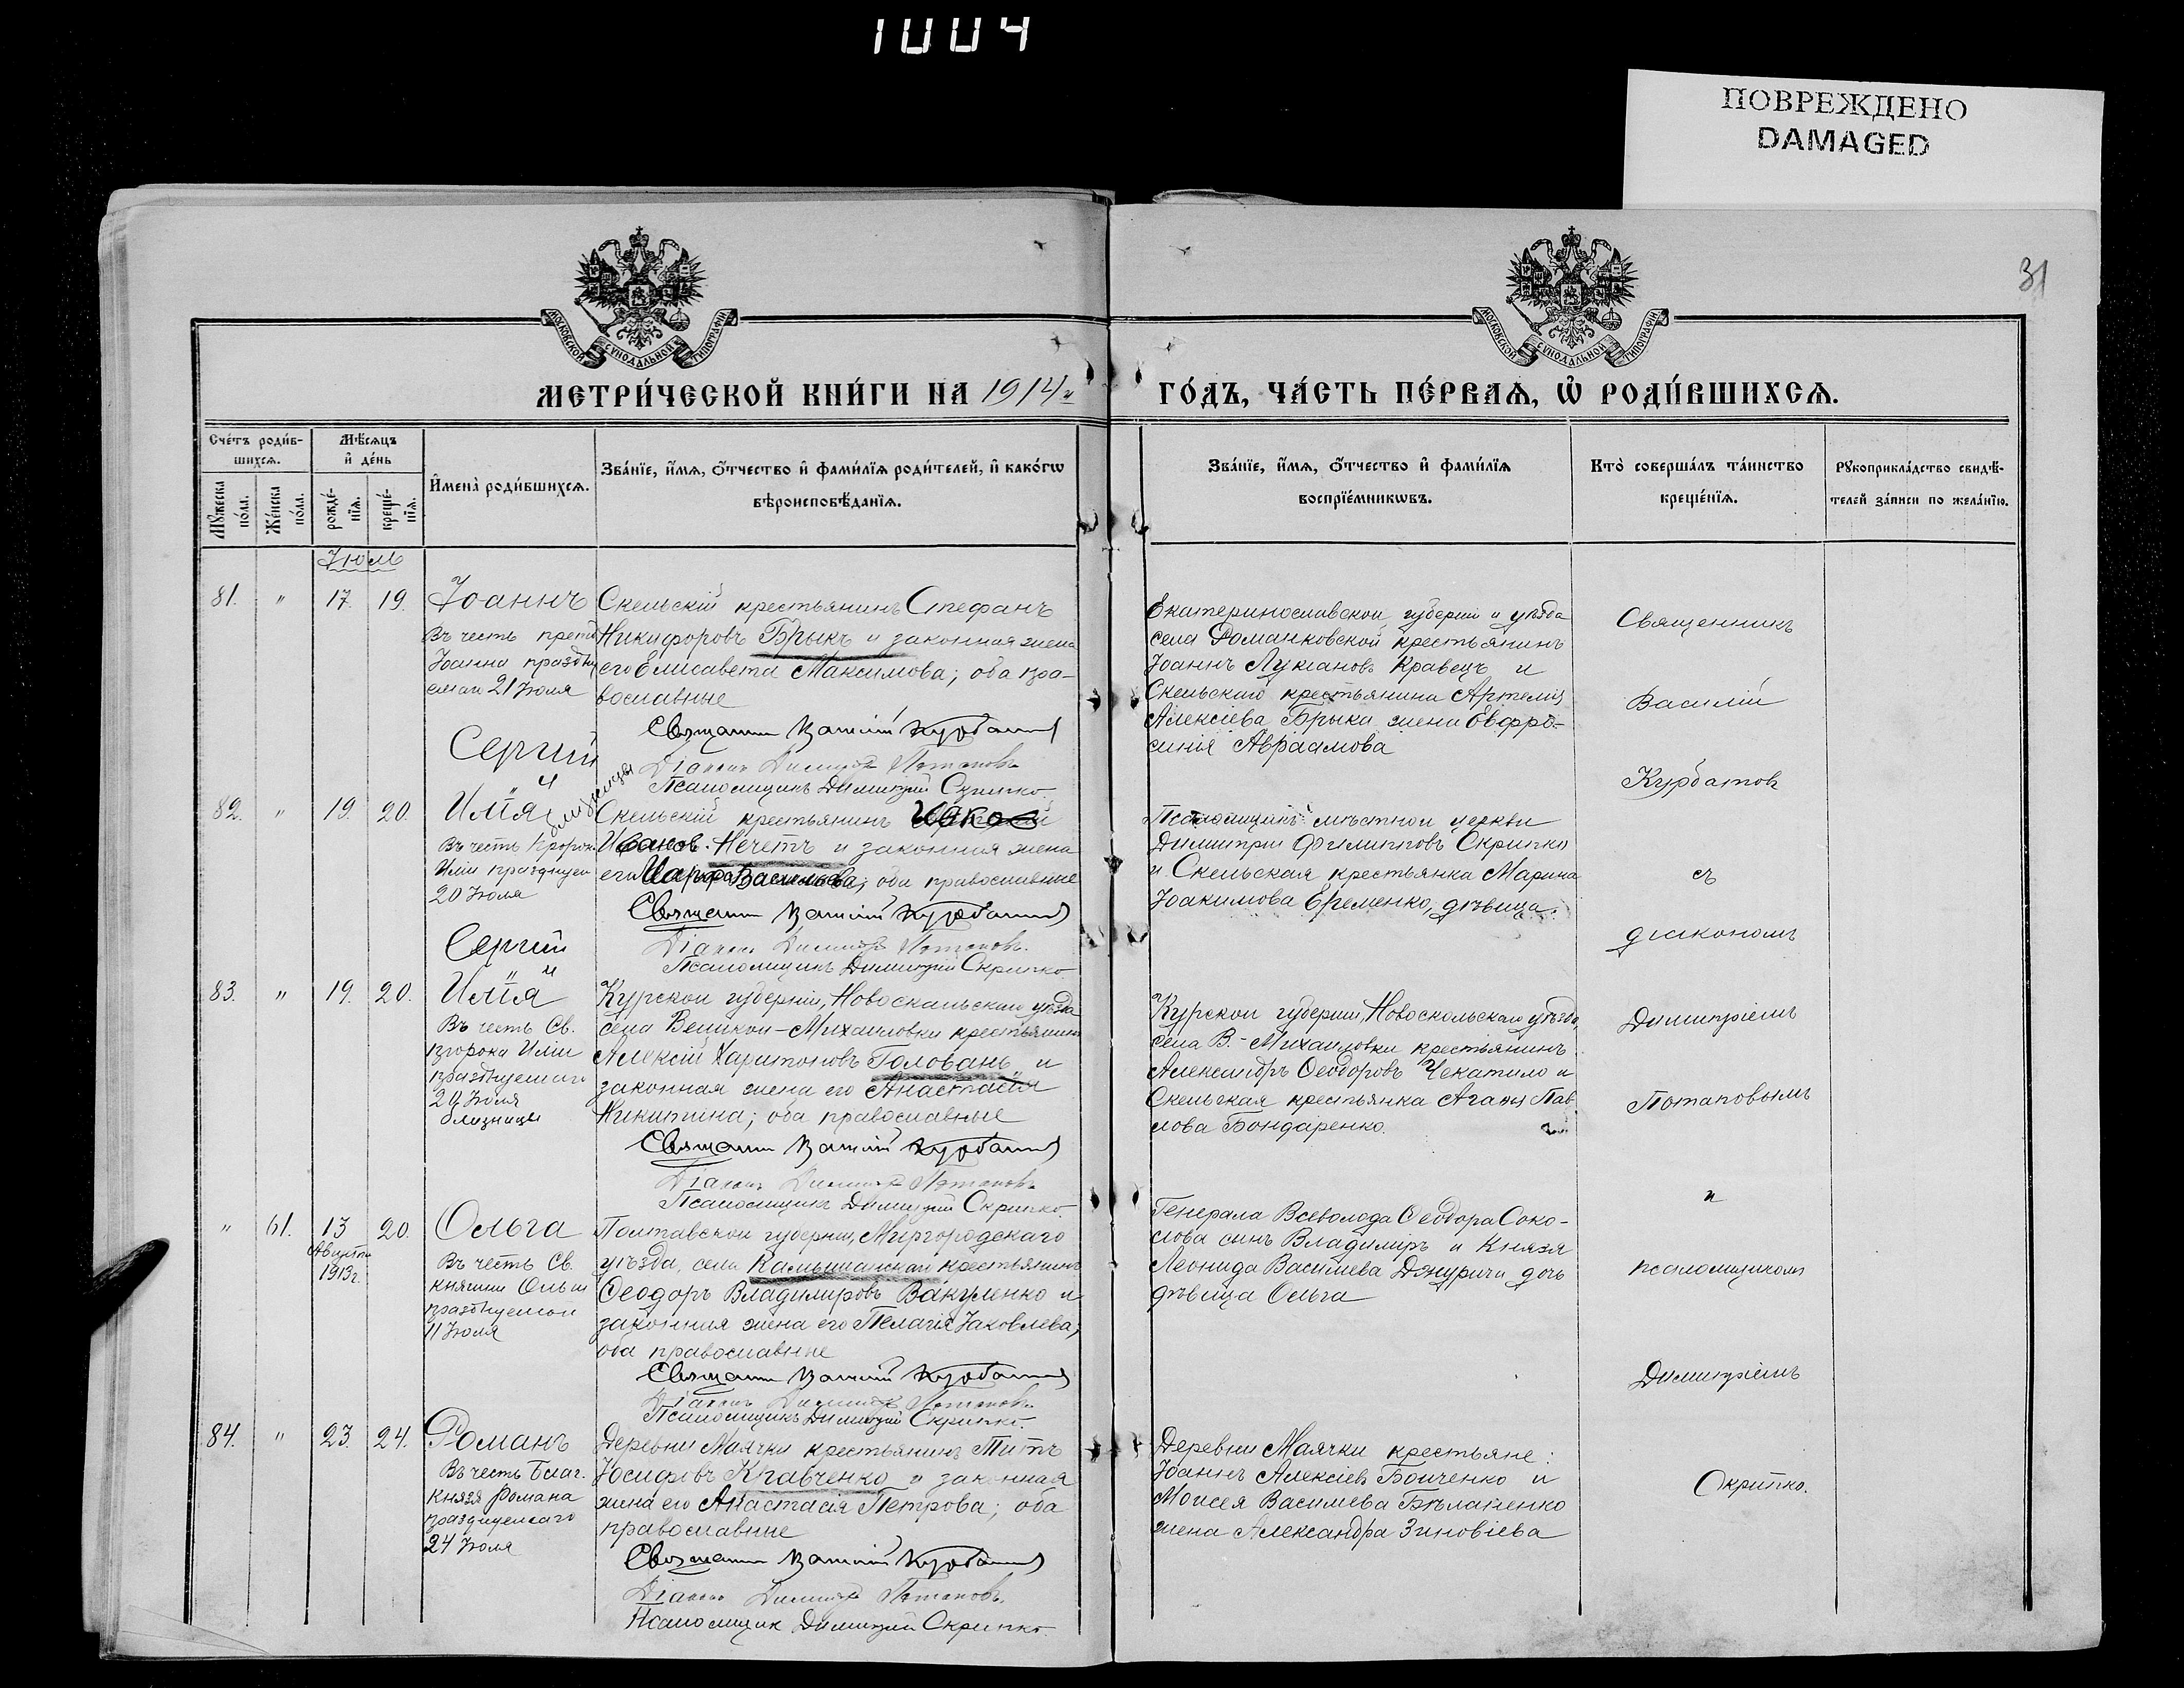 1004
ПОВРЕЖДЕНО
DAMAGED
31
МОСКОВСКОЙ СѴНОДАЛЬНОЙ ТИПОГРАФІИ
МОСКОВСКОЙ СѴНОДАЛЬНОЙ ТИПОГРАФІИ
МЕТРИ́ЧЕСКОЙ КНИ́ГИ НА 1914 й
ГО́ДЪ, ЧА́СТЬ ПЕ́РВАѦ, Ѡ҆ РОДИ́ВШИХСѦ.
Сче́тъ роди́в-
шихсѧ.
Мѣ́сѧцъ
и҆ де́нь
Мꙋ́жеска по́ла.
Же́нска по́ла.
рожде́-
нїѧ.
креще́-
нїѧ.
И҆мена̀ роди́вшихсѧ.
Зва́нїе, и҆́мѧ, ѻ҆́тчество и҆ фами́лїѧ роди́телей, и҆ како́гѡ
вѣроисповѣ́данїѧ.
Зва́нїе, и҆́мѧ, ѻ҆́тчество и҆ фами́лїѧ
воспрїе́мникѡвъ.
Кто̀ соверша́лъ та́инство
креще́нїѧ.
Рꙋкоприкла́дство свидѣ́-
телей за́писи по жела́нїю.
Іюль
81. " 17. 19. Іоаннъ
Въ честь преп.
Іоанна праздну
емаго 21 Іюля
Скельскій крестьянинъ Стефанъ
Никифоровъ Брыкъ и законная жена
его Елисавета Максимова; оба пра-
вославные
Священникъ Василій Курбатовъ
Діаконъ Димитрій Потаповъ
Псаломщикъ Димитрій Скрипко.
Екатеринославской губерніи и уѣзда
села Романковской крестьянинъ
Іоаннъ Лукіановъ Кравецъ и
Скельскаго крестьянина Артемія
Алексіева Брыка жена Евфро-
синія Авраамова
Сергій
и
82. " 19. 20. Илія близнецы
Въ честь Пророк.
Иліи празднуем
20 Іюля
Скельскій крестьянинъ Иаков
Иванов. Нечетъ и законная жена
его Марфа Васильева; оба православные
Священникъ Василій Курбатовъ
Діаконъ Димитрій Потаповъ.
Псаломщикъ Димитрій Скрипко
Псаломщикъ мѣстной церкви
Димитрій Филипповъ Скрипко
и Скельская крестьянка Марина
Іоакимова Еременко, дѣвица.
Сергій
и
83. " 19. 20. Илія
Въ честь Св.
пророка Иліи
празднуемаго
20 Іюля
близнецы
Курской губерніи, Новооскольскаго уѣзда
села Великой-Михаиловки крестьянинъ
Алексій Харитоновъ Головань и
законная жена его Анастасія
Никитина; оба православные
Священникъ Василій Курбатовъ
Діаконъ Димитрій Потаповъ
Псаломщикъ Димитрій Скрипко.
Курской губерніи, Новооскольскаго уѣзда,
села В.-Михаиловки крестьянинъ
Александръ Ѳеодоровъ Чекатило и
Скельская крестьянка Агаѳія Пав
лова Бондаренко.
" 61. 13 20. Ольга
Августа
1913 г.
Въ честь Св.
княгини Ольги
празднуемой
11 Іюля
Полтавской губерніи, Миргородскаго
уѣзда, села Камышанской крестьянинъ
Ѳеодоръ Владиміровъ Вакуленко и
законная жена его Пелагія Іаковлева;
оба православные
Священникъ Василій Курбатовъ
Діаконъ Димитрій Потаповъ.
Псаломщикъ Димитрій Скрипко.
Генерала Всеволода Ѳеодора Соко-
лова сынъ Владиміръ и Князя
Леонида Васильева Джурича дочь
дѣвица Ольга
84. " 23. 24. Романъ
Въ честь Благ.
Князя Романа
празднуемаго
24 Іюля
Деревни Маячки крестьянинъ Титъ
Іосифовъ Кравченко и законная
жена его Анастасія Петрова; оба
православные
Священникъ Василій Курбатовъ
Діаконъ Димитрій Потаповъ.
Псаломщик Димитрій Скрипко.
Деревни Маячки крестьяне:
Іоаннъ Алексіевъ Бойченко и
Моисея Васильева Бѣланенко
жена Александра Зиновіева
Священникъ
Василій
Курбатовъ
съ
діакономъ
Димитріемъ
Потаповымъ
и
псаломщикомъ
Димитріемъ
Скрипко.